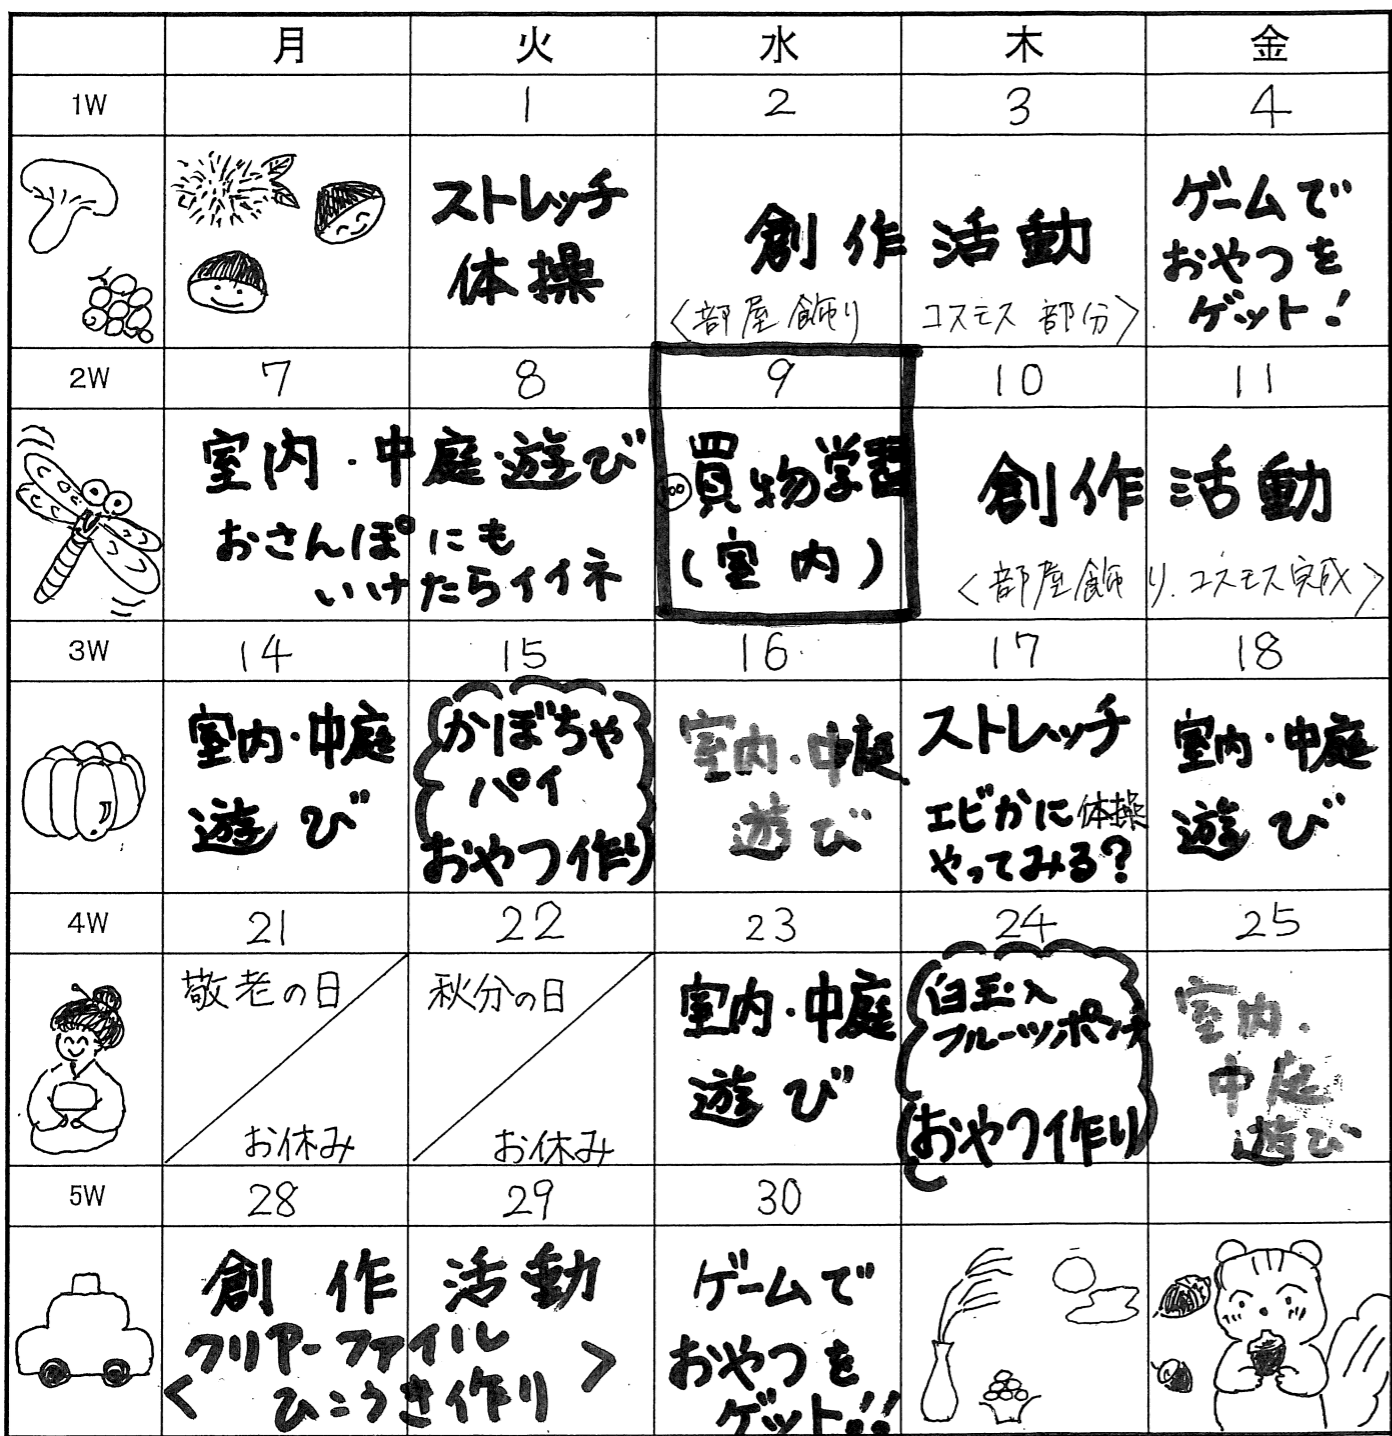 月 火 水 木 金
1W 1 2 3 4
ストレッチ
体操
創作活動
〈部屋飾り コスモス部分〉
ゲームで
おやつを
ゲット!
2W 7 8 9 10 11
室内・中庭・遊び
おさんぽにも
いけたらイイネ
買物学習
(室内)
創作活動
〈部屋飾り.コスモス完成〉
3W 14 15 16 17 18
室内・中庭
遊び
かぼちゃ
パイ
おやつ作り
室内・中庭
遊び
ストレッチ
エビかに体操
やってみる?
室内・中庭
遊び
4W 21 22 23 24 25
敬老の日
お休み
秋分の日
お休み
室内・中庭
遊び
白玉入
フルーツポンチ
おやつ作り
室内・
中庭
遊び
5W 28 29 30
創作活動
クリアーファイル
〈ひこうき作り〉
ゲームで
おやつを
ゲット!!